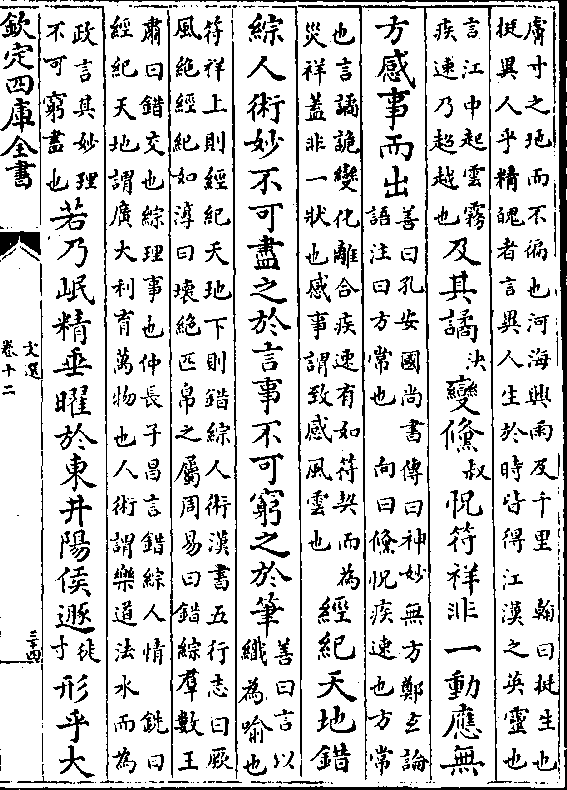 膚寸之地而不徧也河海興雨及千里　翰曰挺生也
挺異人乎精魄者言異人生於時皆得江漢之英靈也
言江中起雲霧
疾速乃超越也
及其譎決變儵叔怳符祥非一動應無
方感事而出
善曰孔安國尚書傳曰神妙無方鄭玄論
語注曰方常也　向曰儵怳疾速也方常
也言譎詭變化離合疾速有如符契而為
災祥盖非一狀也感事謂致感風雲也
經紀天地錯
綜人術妙不可盡之於言事不可窮之於筆
善曰言以
纎為喻也
符祥上則經紀天地下則錯綜人術漢書五行志曰厥
風絶經紀如淳曰壊絶匹帛之屬周易曰錯綜羣數王
肅曰錯交也綜理事也仲長子昌言錯綜人情　銑曰
經紀天地謂廣大利育萬物也人術謂樂道法水而為
政言其妙理
不可窮盡也
若乃岷精垂曜於東井陽侯遯徒寸形乎大
欽定四庫全書
文選
卷十二
三十四